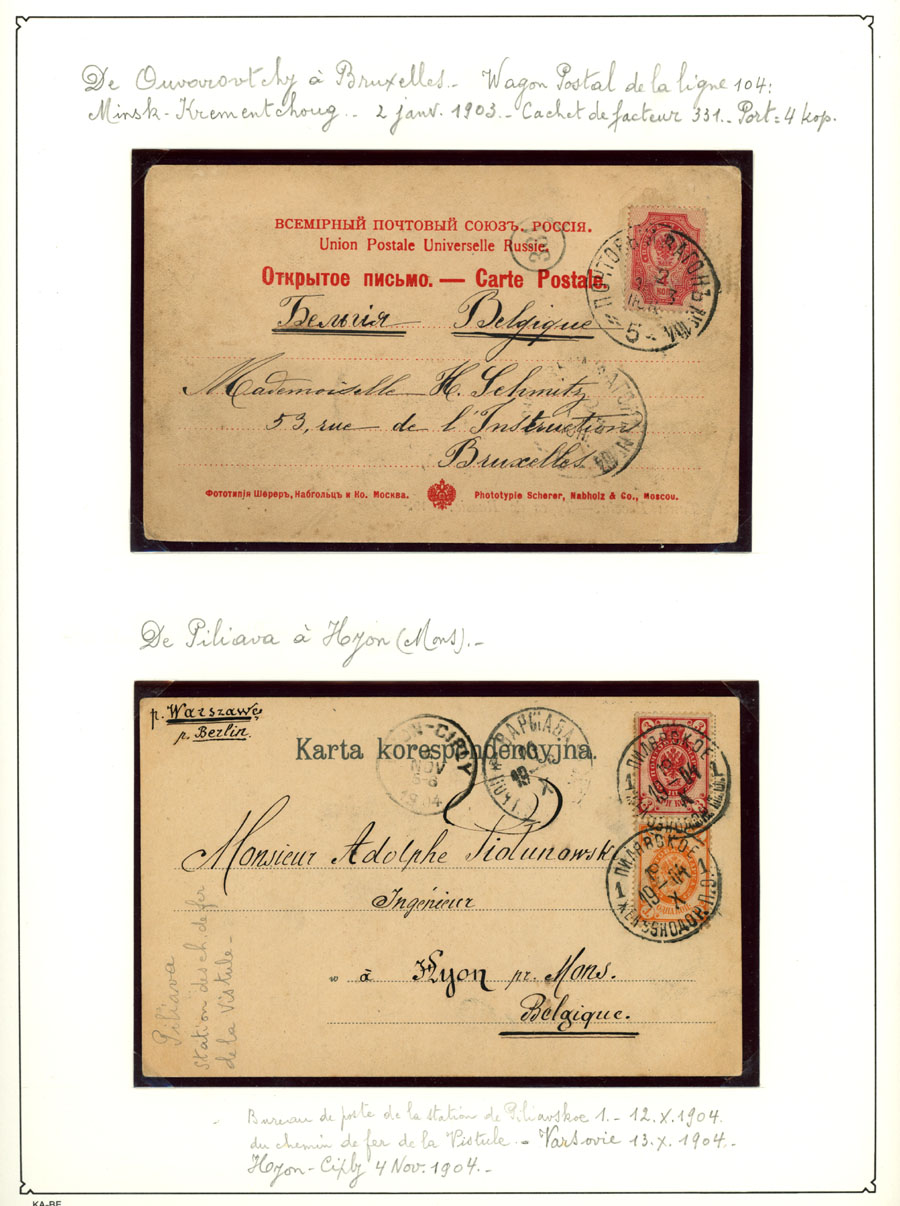 De Ouvarovtchy à Bruxelles.- Wagon Postal de la ligne 104:
Minsk-Krementchoug.- 2 janv. 1903.- Cachet de facteur 331.- Port=4 kop.
ВСЕМІРНЫЙ ПОЧТОВЫЙ СОЮЗЪ. РОССІЯ.
Union Postale Universelle Russie.
331
Открытое письмо. — Carte Postale.
ПОЧТОВЫЙ ВАГОНЪ
Бельгія Belgique
Mademoiselle H. Schmitz
53, rue de l'Instruction
Bruxelles
Фототипія Шереръ, Набгольцъ и Ко. Москва. Phototypie Scherer, Nabholz & Co., Moscou.
De Piliava à Hyon (Mons).-
p. Warszawę
p. Berlin.
Karta korespondencyjna.
HYON-CIPLY
NOV
1904
ВАРШАВА
ПИЛЯВСКОЕ
Monsieur Adolphe Pidunowski
Ingénieur
à Hyon pr. Mons.
Belgique.
ПИЛЯВСКОЕ
Piliava
Station des ch. de fer
de la Vistule-
Bureau de poste de la station de Piliavskoe 1.- 12.X.1904.
du chemin de fer de la Vistule.- Varsovie 13.X.1904.-
Hyon-Ciply 4 Nov. 1904.-
KA-BE